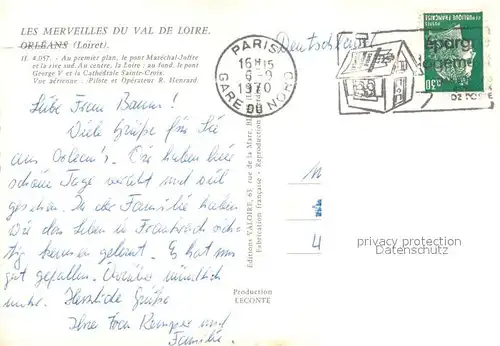 LES MERVEILLES DU VAL DE LOIRE.
ORLÉANS (Loiret).
H. 4.057. - Au premier plan, le pont Maréchal-Joffre
et la rive sud. Au centre, la Loire ; au fond, le pont
George V et la Cathédrale Sainte-Croix.
Vue aérienne - Pilote et Opérateur R. Henrard.
Deutschland
PARIS
16H15
6-9
1970
GARE DU NORD
épargne
0,30
Liebe Frau Baum!
Viele Grüße für Sie
aus Orleans. Wir haben hier
schöne Tage verlebt und viel
gesehen. In der Familie haben
wir das Leben in Frankreich rich-
tig kennen gelernt. Es hat uns
gut gefallen. Darüber mündlich
mehr. Herzliche Grüße
Ihre Frau Kemper und
Familie.
Editions VALOIRE, 63, rue de la Mare,
Fabrication française - Reproduction
Production
LECONTE
privacy protection
Datenschutz